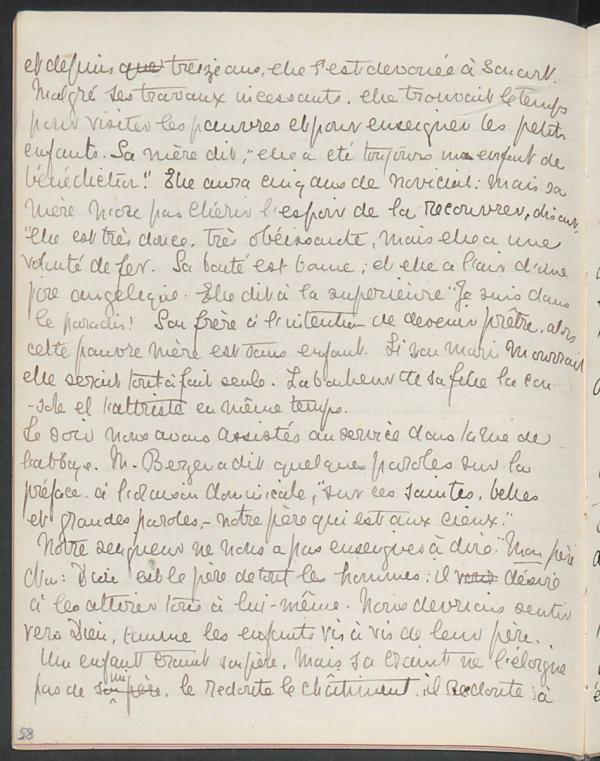 et depuis que treize ans, elle s'est dévouée à Sénart.
Malgré ses travaux incessants, elle trouvait le temps
pour visiter les pauvres et pour enseigner les petits
enfants. Sa mère dit, "elle a été toujours un enfant de
bénédiction." Elle aura cinq ans de noviciat: mais sa
mère n'ose pas chérir l'espoir de la recouvrer, disant,
"elle est très douce, très obéissante, mais elle a une
volonté de fer. Sa santé est bonne, et elle a l'air d'une
joie angélique. Elle dit à la supérieure "Je suis dans
le paradis! Son frère a l'intention de devenir prêtre, alors
cette pauvre mère est sans enfant. Si son mari mourrait
elle serait tout à fait seule. Le bonheur de sa fille la con
-sole et l'attriste en même temps.
Le soir nous avons assistés au service dans la rue de
l'abbaye. M. Berger a dit quelques paroles sur la
préface à l'oraison dominicale, "sur ces saintes, belles
et grandes paroles, - notre père qui est aux cieux."
Notre seigneur ne nous a pas enseignés à dire "Mon père
Dieu est le père de tout les hommes: il veut désire
à les attirer tous à lui-même. Nous devrions sentir
vers Dieu, comme les enfants vis à vis de leur père.
Un enfant craint son père, mais sa craint ne l'éloigne
pas de son père. le redoute le châtiment. il redoute à
58